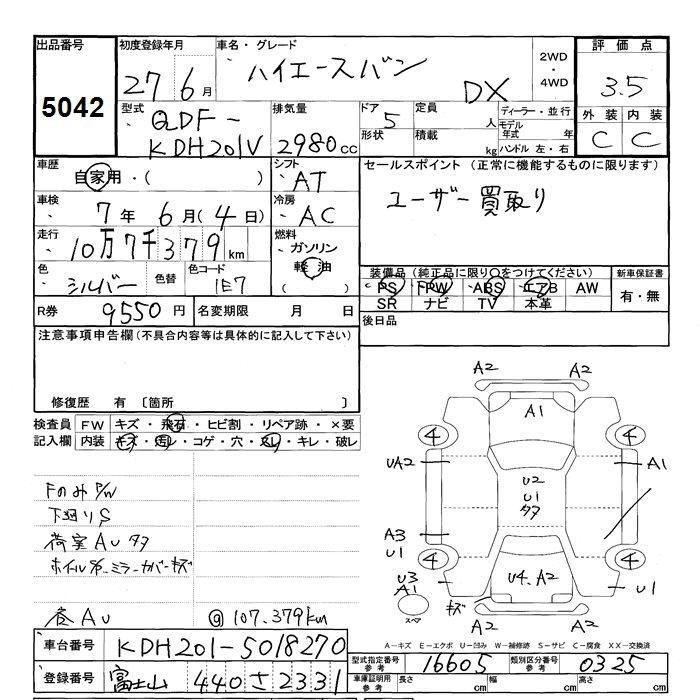 出品番号
5042
初度登録年月
27年6月
車名・グレード
ハイエースバン
DX
2WD
・
4WD
評価点
3.5
外装 内装
C C
型式
QDF-
KDH201V
排気量
2980cc
ドア
5
形状
定員
人
積載
kg
ディーラー・並行
モデル年式 年
ハンドル 左・右
車歴
自家用・( )
シフト
AT
車検
7年6月(4日)
冷房
AC
走行
10万7千379km
燃料
ガソリン
軽油
( )
色
シルバー
色替
色コード
1E7
セールスポイント (正常に機能するものに限ります)
ユーザー買取り
装備品 (純正品に限り○をつけてください)
PS PW ABS エアB AW
SR ナビ TV 本革
新車保証書
有・無
R券 9550円
名変期限 月 日
後日品
注意事項申告欄(不具合内容等は具体的に記入して下さい)
修復歴 有〔箇所 〕
検査員記入欄
FW キズ・飛石・ヒビ割・リペア跡・×要
内装 キズ・汚レ・コゲ・穴・スレ・キレ・破レ
Fのみ P/W
下廻りS
荷室AUタタ
ミラーカバーキズ
AU
@107.379km
A2 A2
A1
4 4
UA2 A1
U2
U1
タタ
A3
U1
4 4
U3
A1
U4.A2
U1
スペア
キズ
A2 A2
A-キズ E-エクボ U-凹み W-補修跡 S-サビ C-腐食 XX-交換済
車台番号 KDH201-5018270
登録番号 富士山 440 さ 2331
型式指定番号 参考 16605
類別区分番号 参考 0325
車庫証明用 参考 長さ cm 幅 cm 高さ cm